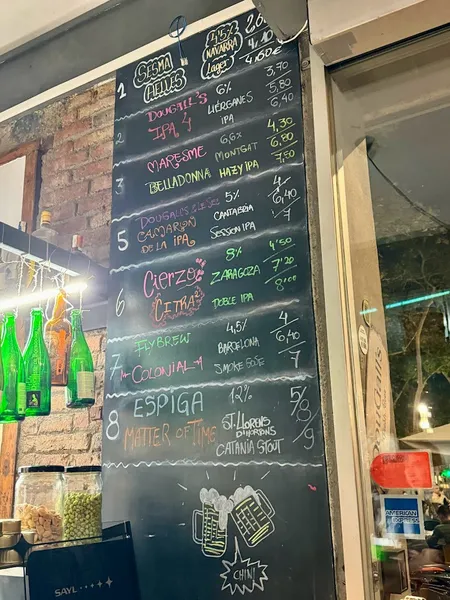 1 SESMA HELLES 4,5% NAVARRA Lager
2 DOUGALL'S IPA 4 6% LIÉRGANES IPA 3,70 5,80 6,40
3 MARESME BELLADONNA 6,6% MONTGAT HAZY IPA 4,30 6,80
5 CAMARÓN DE LA IPA 5% CANTABRIA SESSION IPA 4 6,40 7
6 Cierzo CITRA 8% ZARAGOZA DOBLE IPA 4'50 7'20 8'00
7 FLYBREW COLONIAL 4,5% BARCELONA 4 6,40 7
8 ESPIGA MATTER OF TIME 12% ST. LLORENS D'HORTONS CATANIA STOUT 5 8 9
CHIN!
SAYL
AMERICAN EXPRESS